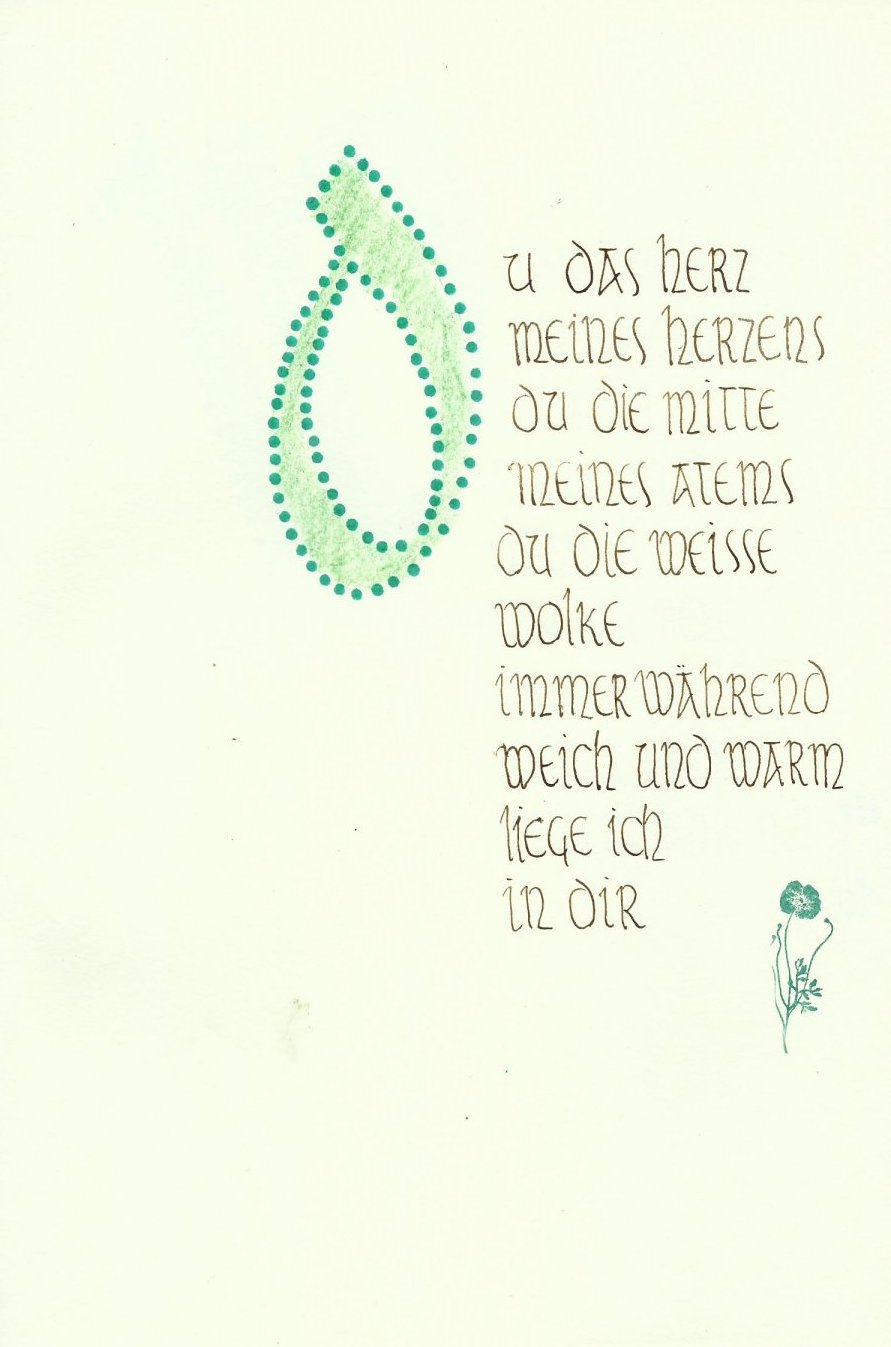 Du das herz
meines herzens
du die mitte
meines atems
du die weisse
wolke
immerwährend
weich und warm
liege ich
in dir